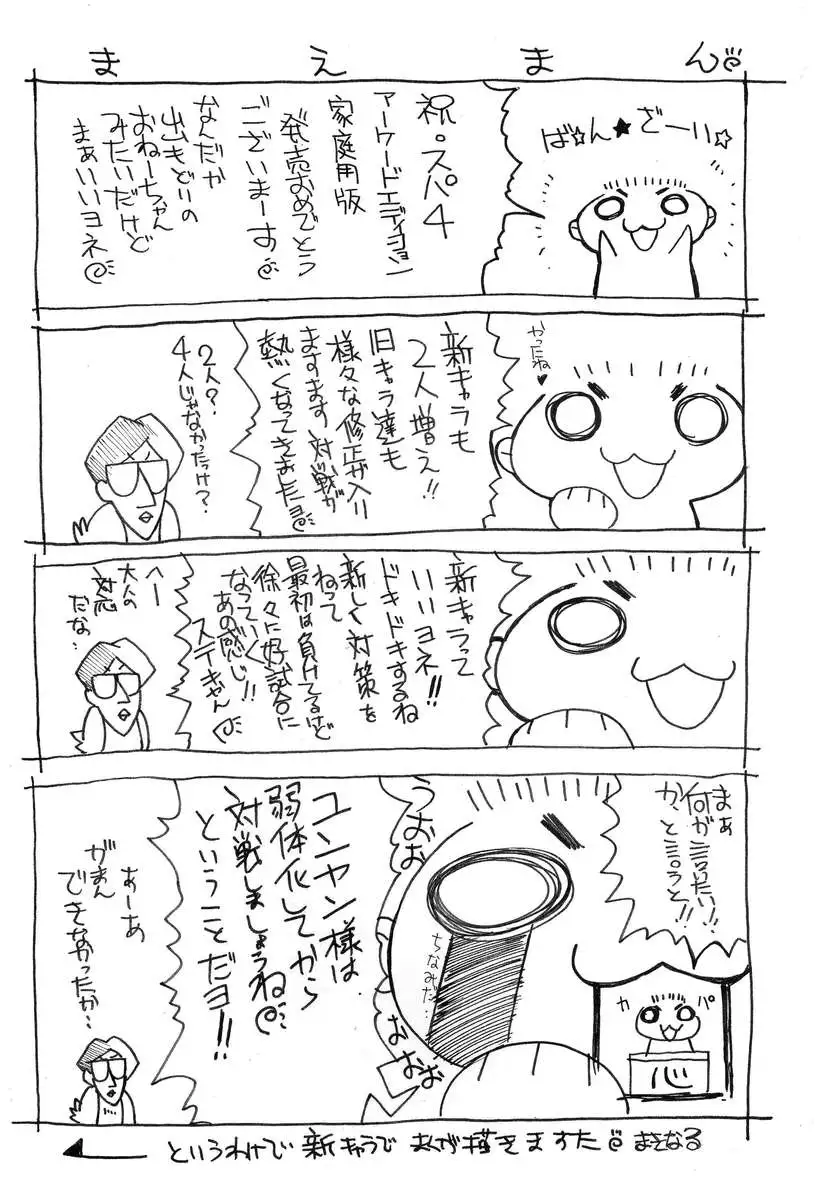 まえまん
ば☆ん★ざーい☆
祝。スパ4
アーケードエディション
家庭用版
発売おめでとう
ございまーす
なんだか
出もどりの
おねーちゃん
みたいだけど
まぁいいヨネ
かったね♥
新キャラも
2人増え!!
旧キャラ達も
様々な修正が入り
ますます対戦が
熱くなってきまたヨ
2人?
4人じゃなかったっけ?
新キャラって
いいヨネ!!
ドキドキするね
新しく対策を
ねって
最初は負けてるけど
徐々に好試合に
なっていく
あの感じ!!
ステキやん
へー
大人の
対応
だな…
まぁ
何が言いたい!!
か、と言うと!!
カパ
心
うおお
ちなみだ…
なおお
ユンヤン様は
弱体化してから
対戦しましょうね
ということだヨ!!
あーあ
がまん
できなかったか…
というわけで 新キャラで まんが描きますた まさなる